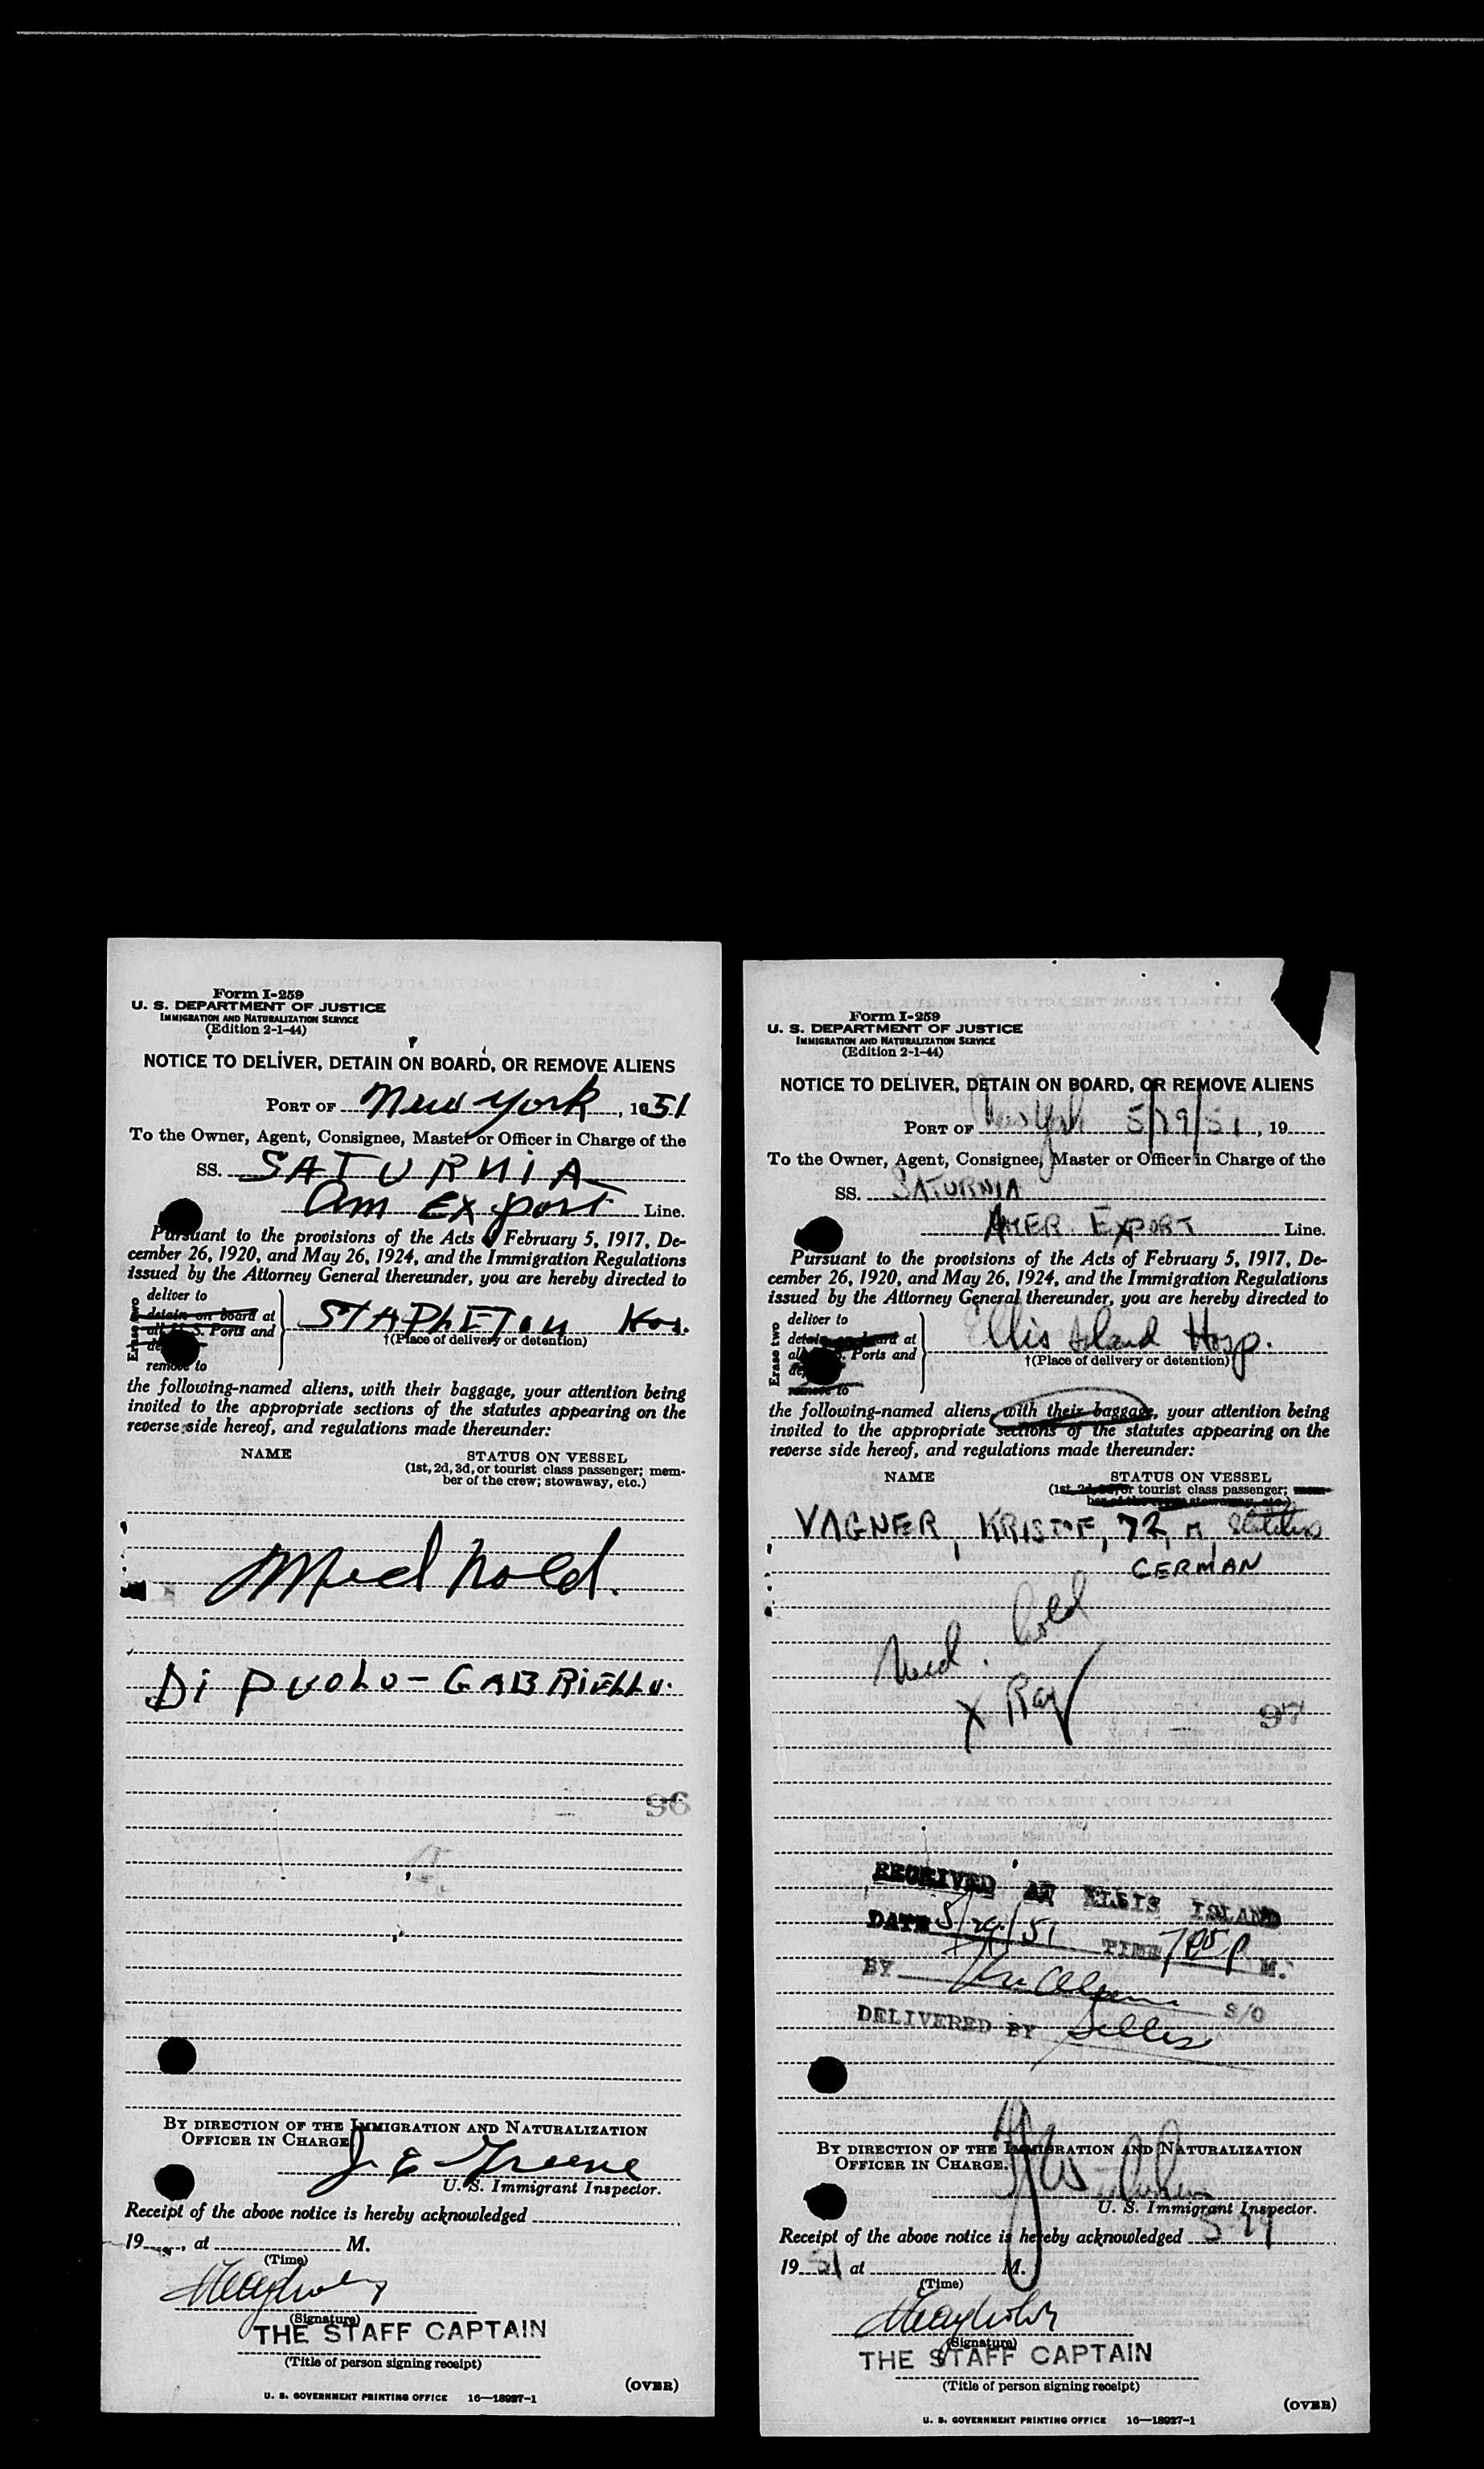 Form I-259
U. S. DEPARTMENT OF JUSTICE
IMMIGRATION AND NATURALIZATION SERVICE
(Edition 2-1-44)
NOTICE TO DELIVER, DETAIN ON BOARD, OR REMOVE ALIENS
PORT OF New York, 1951
To the Owner, Agent, Consignee, Master or Officer in Charge of the
SS. SATURNIA
Am Export Line.
Pursuant to the provisions of the Acts of February 5, 1917, De-
cember 26, 1920, and May 26, 1924, and the Immigration Regulations
issued by the Attorney General thereunder, you are hereby directed to
Erase two
deliver to
detain on board at
all U. S. Ports and
remove to
STAPLETON Hos.
†(Place of delivery or detention)
the following-named aliens, with their baggage, your attention being
invited to the appropriate sections of the statutes appearing on the
reverse side hereof, and regulations made thereunder:
NAME
STATUS ON VESSEL
(1st, 2d, 3d, or tourist class passenger; mem-
ber of the crew; stowaway, etc.)
Med hold.
Di PUOLO - GABRIELLO.
96
BY DIRECTION OF THE IMMIGRATION AND NATURALIZATION
OFFICER IN CHARGE
J. E Greene
U. S. Immigrant Inspector.
Receipt of the above notice is hereby acknowledged
19 , at M.
(Time)
(Signature)
THE STAFF CAPTAIN
(Title of person signing receipt)
(OVER)
U. S. GOVERNMENT PRINTING OFFICE 16—18927-1
Form I-259
U. S. DEPARTMENT OF JUSTICE
IMMIGRATION AND NATURALIZATION SERVICE
(Edition 2-1-44)
NOTICE TO DELIVER, DETAIN ON BOARD, OR REMOVE ALIENS
PORT OF New York 5/29/51, 19
To the Owner, Agent, Consignee, Master or Officer in Charge of the
SS. SATURNIA
AMER. EXPORT Line.
Pursuant to the provisions of the Acts of February 5, 1917, De-
cember 26, 1920, and May 26, 1924, and the Immigration Regulations
issued by the Attorney General thereunder, you are hereby directed to
Erase two
deliver to
detain on board at
all U. S. Ports and
remove to
Ellis Island Hosp.
†(Place of delivery or detention)
the following-named aliens, with their baggage, your attention being
invited to the appropriate sections of the statutes appearing on the
reverse side hereof, and regulations made thereunder:
NAME
STATUS ON VESSEL
(1st, 2d, 3d, or tourist class passenger; mem-
ber of the crew; stowaway, etc.)
VAGNER, KRISTOF, 72, M,
GERMAN
Med. hold
X Ray
97
RECEIVED AT ELLIS ISLAND
DATE 5/29/51 TIME 705 P M.
BY S/O
DELIVERED BY
BY DIRECTION OF THE IMMIGRATION AND NATURALIZATION
OFFICER IN CHARGE.
U. S. Immigrant Inspector.
Receipt of the above notice is hereby acknowledged 5-29
1951 at M.
(Time)
(Signature)
THE STAFF CAPTAIN
(Title of person signing receipt)
(OVER)
U. S. GOVERNMENT PRINTING OFFICE 16—18927-1